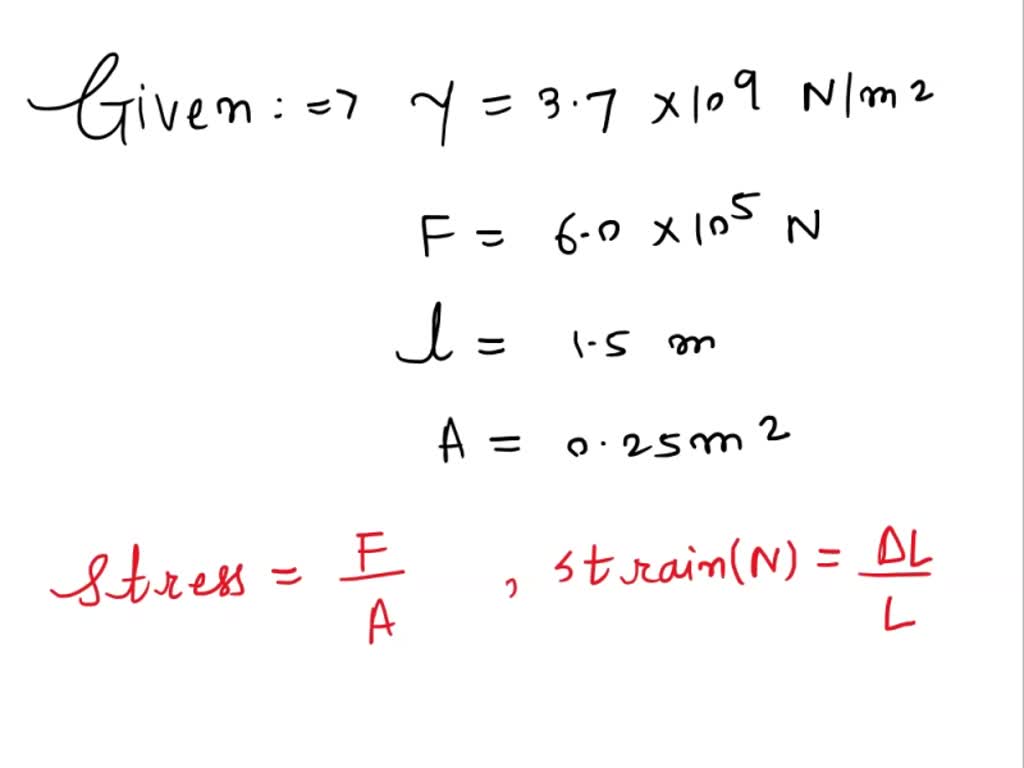 Given: => Y = 3.7 × 10⁹ N/m²
F = 6.0 × 10⁵ N
l = 1.5 m
A = 0.25 m²
Stress = F/A , strain(N) = ΔL/L